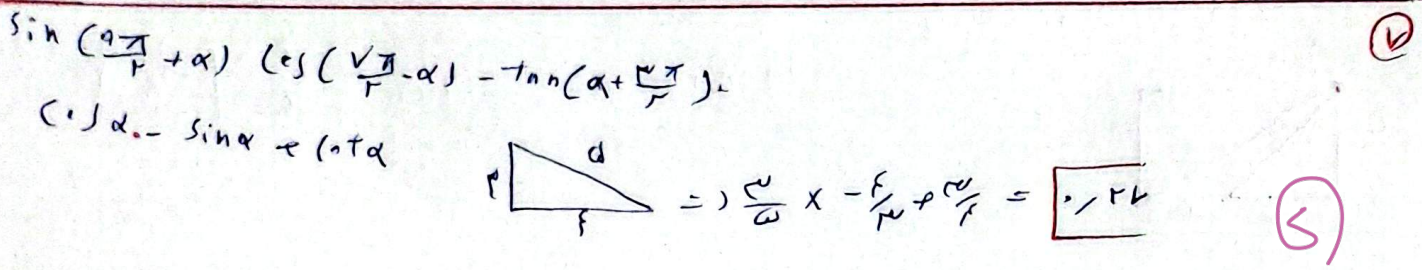 ۷
sin (۹π/۲ + α) Cos (۷π/۲ - α) - tan (α + ۳π/۲) .
Cosα . - Sinα + Cotα
۳ ۵ ۴ => ۳/۵ × -۴/۳ + ۳/۴ = ۰,۲۷